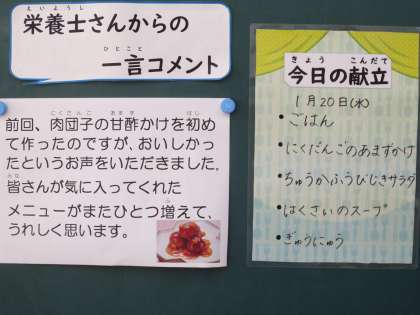 えいようし
栄養士さんからの
ひとこと
一言コメント
にくだんご あまず はじ
前回、肉団子の甘酢かけを初め
て作ったのですが、おいしかっ
たというお声をいただきました。
みな
皆さんが気に入ってくれた
メニューがまたひとつ増えて、
うれしく思います。
きょう こんだて
今日の献立
1月20日(水)
・ごはん
・にくだんごのあまずがけ
・ちゅうかふうひじきサラダ
・はくさいのスープ
・ぎゅうにゅう